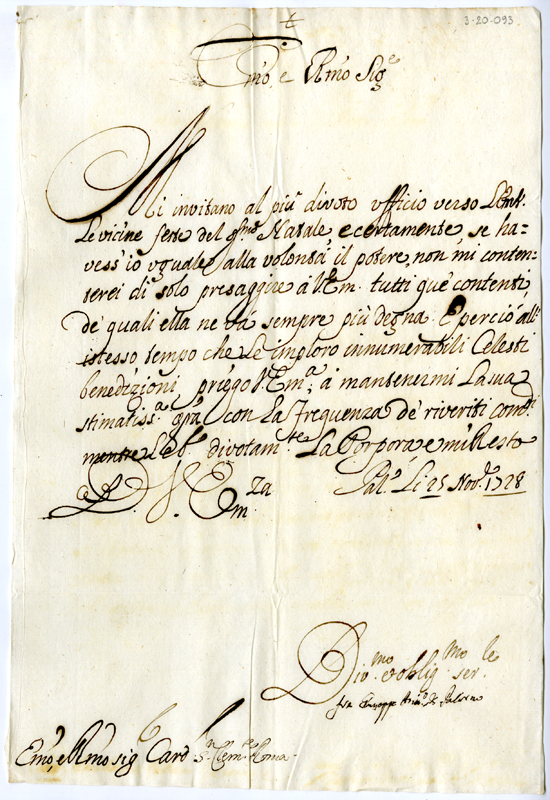 3-20-093
Emo, e Rmo Sige
Mi invitano al più divoto ufficio verso l'Emr.
Le vicine feste del Smo Natale, e certamente, se ha-
vess'io uguale alla volontà il potere, non mi conten-
terei di solo presaggire à V. Em. tutti que' contenti,
de' quali ella ne và sempre più degna. E perciò all'
istesso tempo che le imploro innumerabili Celesti
benedizioni priego V. Ema, à mantenermi la sua
stimatissa gra con la frequenza de' riveriti comdi
mentre Le bo divotamte La Porpora, e mi Resto
D. V. Emza Pal. Li 25 Nove 1728
Divmo et obligmo serle
fra Giuseppe Anto di Palermo
Emo, e Rmo sigr Card Sn Clemte Roma.